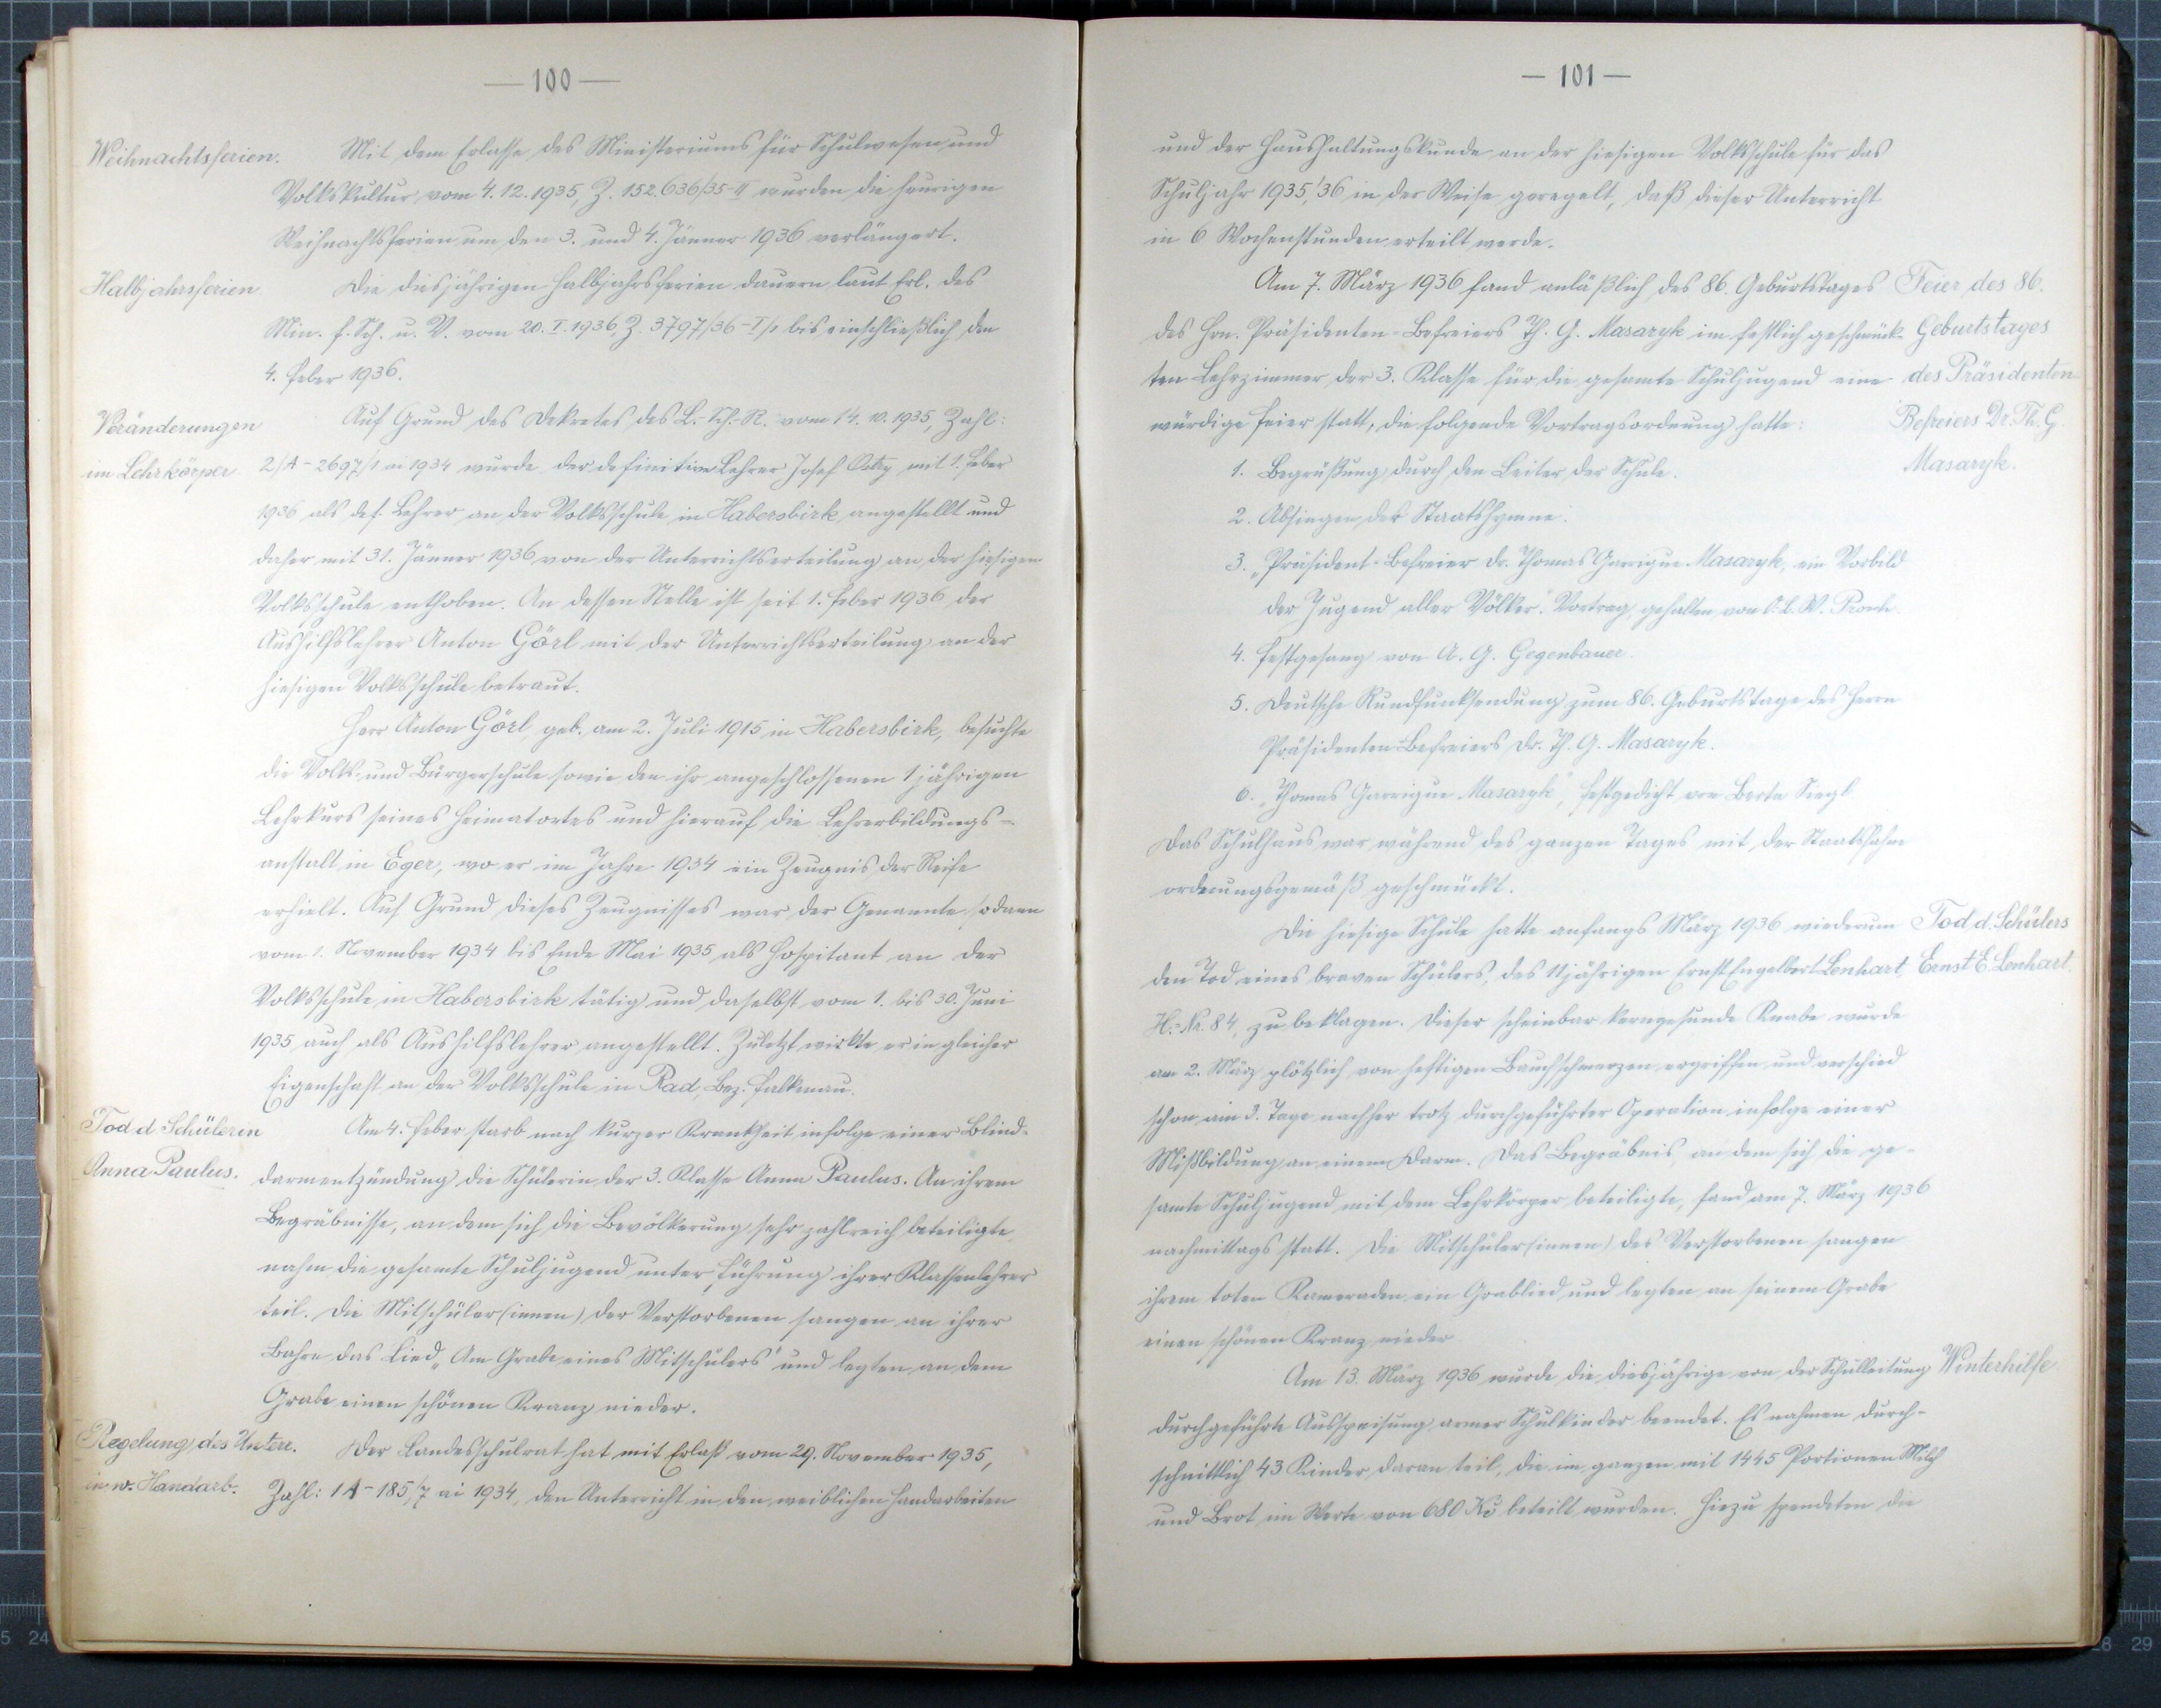 — 100 —
Weihnachtsferien. Mit dem Erlasse des Ministeriums für Schulwesen und
Volkskultur vom 4.12.1935, Z. 152.636/35-II wurden die heurigen
Weihnachtsferien um den 3. und 4. Jänner 1936 verlängert.
Halbjahrsferien Die diesjährigen Halbjahrsferien dauern laut Erl. des
Min. f. Sch. u. V. vom 20.I.1936 Z. 3797/36-I/1 bis einschließlich den
4. Feber 1936.
Veränderungen Auf Grund des Dekretes des L.-Sch.-R. vom 14.10.1935, Zahl:
im Lehrkörper 2/A-2697/1 ai 1934 wurde der definitive Lehrer Josef mit 1. Feber
1936 als def. Lehrer an der Volksschule in Habersbirk angestellt und
daher mit 31. Jänner 1936 von der Unterrichtserteilung an der hiesigen
Volksschule enthoben. An dessen Stelle ist seit 1. Feber 1936 der
Aushilfslehrer Anton Görl mit der Unterrichtserteilung an der
hiesigen Volksschule betraut.
Herr Anton Görl, geb. am 2. Juli 1915 in Habersbirk, besuchte
die Volks- und Bürgerschule sowie den ihr angeschlossenen 1 jährigen
Lehrkurs seines Heimatortes und hierauf die Lehrerbildungs-
anstalt in Eger, wo er im Jahre 1934 ein Zeugnis der Reife
erhielt. Auf Grund dieses Zeugnisses war der Genannte sodann
vom 1. November 1934 bis Ende Mai 1935 als Hospitant an der
Volksschule in Habersbirk tätig und daselbst vom 1. bis 30. Juni
1935 auch als Aushilfslehrer angestellt. Zuletzt wirkte er in gleicher
Eigenschaft an der Volksschule in Rad, Bez. Falkenau.
Tod d. Schülerin Am 4. Feber starb nach kurzer Krankheit infolge einer Blind-
Anna Paulus. darmentzündung die Schülerin der 3. Klasse Anna Paulus. An ihrem
Begräbnisse, an dem sich die Bevölkerung sehr zahlreich beteiligte,
nahm die gesamte Schuljugend unter Führung ihrer Klassenlehrer
teil. Die Mitschüler(innen) der Verstorbenen sangen an ihrer
Bahre das Lied „Am Grabe eines Mitschülers" und legten an dem
Grabe einen schönen Kranz nieder.
Regelung des Unterr. Der Landesschulrat hat mit Erlaß vom 29. November 1935,
in w. Handarb. Zahl: 1A-185/7 ai 1934, den Unterricht in den weiblichen Handarbeiten
— 101 —
und der Haushaltungskunde an der hiesigen Volksschule für das
Schuljahr 1935/36 in der Weise geregelt, daß dieser Unterricht
in 6 Wochenstunden erteilt werde.
Am 7. März 1936 fand anläßlich des 86. Geburtstages Feier des 86.
des Hrn. Präsidenten-Befreiers Th. G. Masaryk im festlich geschmück- Geburtstages
ten Lehrzimmer der 3. Klasse für die gesamte Schuljugend eine des Präsidenten-
würdige Feier statt, die folgende Vortragsordnung hatte: Befreiers Dr. Th. G.
1. Begrüßung durch den Leiter der Schule. Masaryk.
2. Absingen der Staatshymne.
3. „Präsident-Befreier Dr. Thomas Garrigue Masaryk, ein Vorbild
der Jugend aller Völker". Vortrag, gehalten von O.L. W.
4. Festgesang von A. G. Gegenbauer.
5. Deutsche Rundfunksendung zum 86. Geburtstage des Herrn
Präsidenten-Befreiers Dr. Th. G. Masaryk.
6. „Thomas Garrigue Masaryk", Festgedicht von Berta Siegl
Das Schulhaus war während des ganzen Tages mit der Staatsfahne
ordnungsgemäß geschmückt.
Die hiesige Schule hatte anfangs März 1936 wiederum Tod d. Schülers
den Tod eines braven Schülers, des 11jährigen Ernst Engelbert Lenhart, Ernst E. Lenhart.
H.-Nr. 84, zu beklagen. Dieser scheinbar kerngesunde Knabe wurde
am 2. März plötzlich von heftigen Bauchschmerzen ergriffen und verschied
schon am 3. Tage nachher trotz durchgeführter Operation infolge einer
Mißbildung an einem Darm. Das Begräbnis, an dem sich die ge-
samte Schuljugend mit dem Lehrkörper beteiligte, fand am 7. März 1936
nachmittags statt. Die Mitschüler(innen) des Verstorbenen sangen
ihrem toten Kameraden ein Grablied und legten an seinem Grabe
einen schönen Kranz nieder.
Am 13. März 1936 wurde die diesjährige von der Schulleitung Winterhilfe
durchgeführte Ausspeisung armer Schulkinder beendet. Es nahmen durch-
schnittlich 43 Kinder daran teil, die im ganzen mit 1445 Portionen Milch
und Brot im Werte von 680 Kč beteilt wurden. Hiezu spendeten die